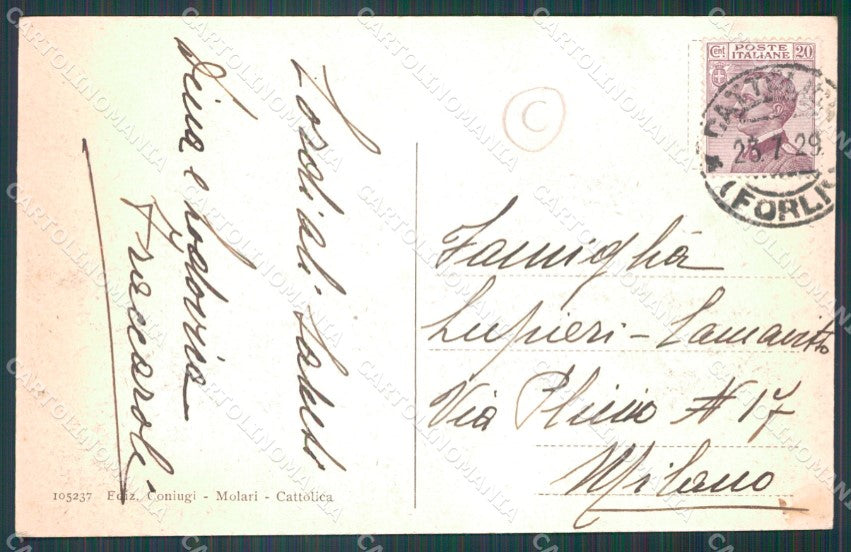 Cordiali Saluti
Dina e Lodovico
Cent POSTE ITALIANE 20
CATTOLICA
23.7.29
(FORLI)
Famiglia
Lupieri-
Via Plinio N 17
Milano
105237 Ediz. Coniugi - Molari - Cattolica
C
CARTOLINOMANIA